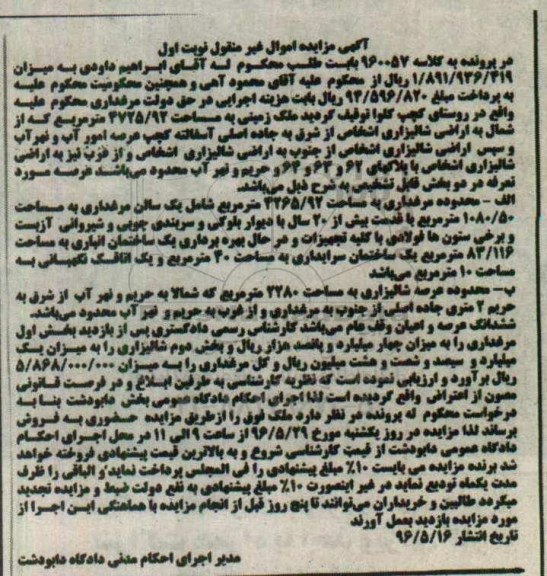 آگهی مزایده اموال غیر منقول نوبت اول
در پرونده به کلاسه ۹۶۰۰۵۷ بابت طلب محکوم له آقای ابراهیم داودی به میزان
۱/۸۹۱/۹۳۶/۴۱۹ ریال از محکوم علیه آقای محمود آهی و همچنین محکومیت محکوم علیه
به پرداخت مبلغ ۹۴/۵۹۶/۸۲۰ ریال بابت هزینه اجرایی در حق دولت مرغداری محکوم علیه
واقع در روستای کچپ کلوا توقیف گردید ملک زمینی به مساحت ۴۷۲۵/۹۲ مترمربع که از
شمال به اراضی شالیزاری اشخاص از شرق به جاده اصلی آسفالته کچپ عرصه امور آب و نهرآب
و سپس اراضی شالیزاری اشخاص از جنوب به اراضی شالیزاری اشخاص و از غرب نیز به اراضی
شالیزاری اشخاص با پلاکهای ۶۲ و ۶۳ و ۶۴ و حریم و نهر آب محدود می‌باشد عرصه مورد
تعرفه در دو بخش قابل تشخیص به شرح ذیل می‌باشد.
الف - محدوده مرغداری به مساحت ۲۴۶۵/۹۲ مترمربع شامل یک سالن مرغداری به مساحت
۱۰۸۰/۵۰ مترمربع با قدمت بیش از ۲۰ سال با دیوار بلوکی و سربندی چوبی و شیروانی آزبست
و برخی ستون ها فولادی با کلیه تجهیزات و در حال بهره برداری یک ساختمان انباری به مساحت
۸۳/۱۱۶ مترمربع یک ساختمان سرایداری به مساحت ۴۰ مترمربع و یک اتاقک نگهبانی به
مساحت ۱۰ مترمربع می‌باشد
ب- محدوده عرصه شالیزاری به مساحت ۲۲۸۰ مترمربع که شمالا به حریم و نهر آب از شرق به
حریم ۲ متری جاده اصلی از جنوب به مرغداری و از غرب به حریم و نهر آب محدود می‌باشد.
ششدانگ عرصه و اعیان وقف عام می‌باشد کارشناس رسمی دادگستری پس از بازدید بخش اول
مرغداری را به میزان چهار میلیارد و پانصد هزار ریال و بخش دوم شالیزاری را به میزان یک
میلیارد و سیصد و شصت و هشت میلیون ریال و کل مرغداری را به میزان ۵/۸۶۸/۰۰۰/۰۰۰
ریال برآورد و ارزیابی نموده است که نظریه کارشناسی به طرفین ابلاغ و در فرصت قانونی
مصون از اعتراض واقع گردیده است لذا اجرای احکام دادگاه عمومی بخش دابودشت بنا به
درخواست محکوم له پرونده در نظر دارد ملک فوق را ازطریق مزایده حضوری به فروش
برساند لذا مزایده در روز یکشنبه مورخ ۹۶/۵/۲۹ از ساعت ۹ الی ۱۱ در محل اجرای احکام
دادگاه عمومی دابودشت از قیمت کارشناسی شروع و به بالاترین قیمت پیشنهادی فروخته خواهد
شد برنده مزایده می بایست ۱۰٪ مبلغ پیشنهادی را فی المجلس پرداخت نماید و الباقی را ظرف
مدت یکماه تودیع نماید در غیر اینصورت ۱۰٪ مبلغ پیشنهادی به نفع دولت ضبط و مزایده تجدید
میگردد طالبین و خریداران می‌توانند تا پنج روز قبل از انجام مزایده با هماهنگی این اجرا از
مورد مزایده بازدید بعمل آورند
تاریخ انتشار ۹۶/۵/۱۶
مدیر اجرای احکام مدنی دادگاه دابودشت